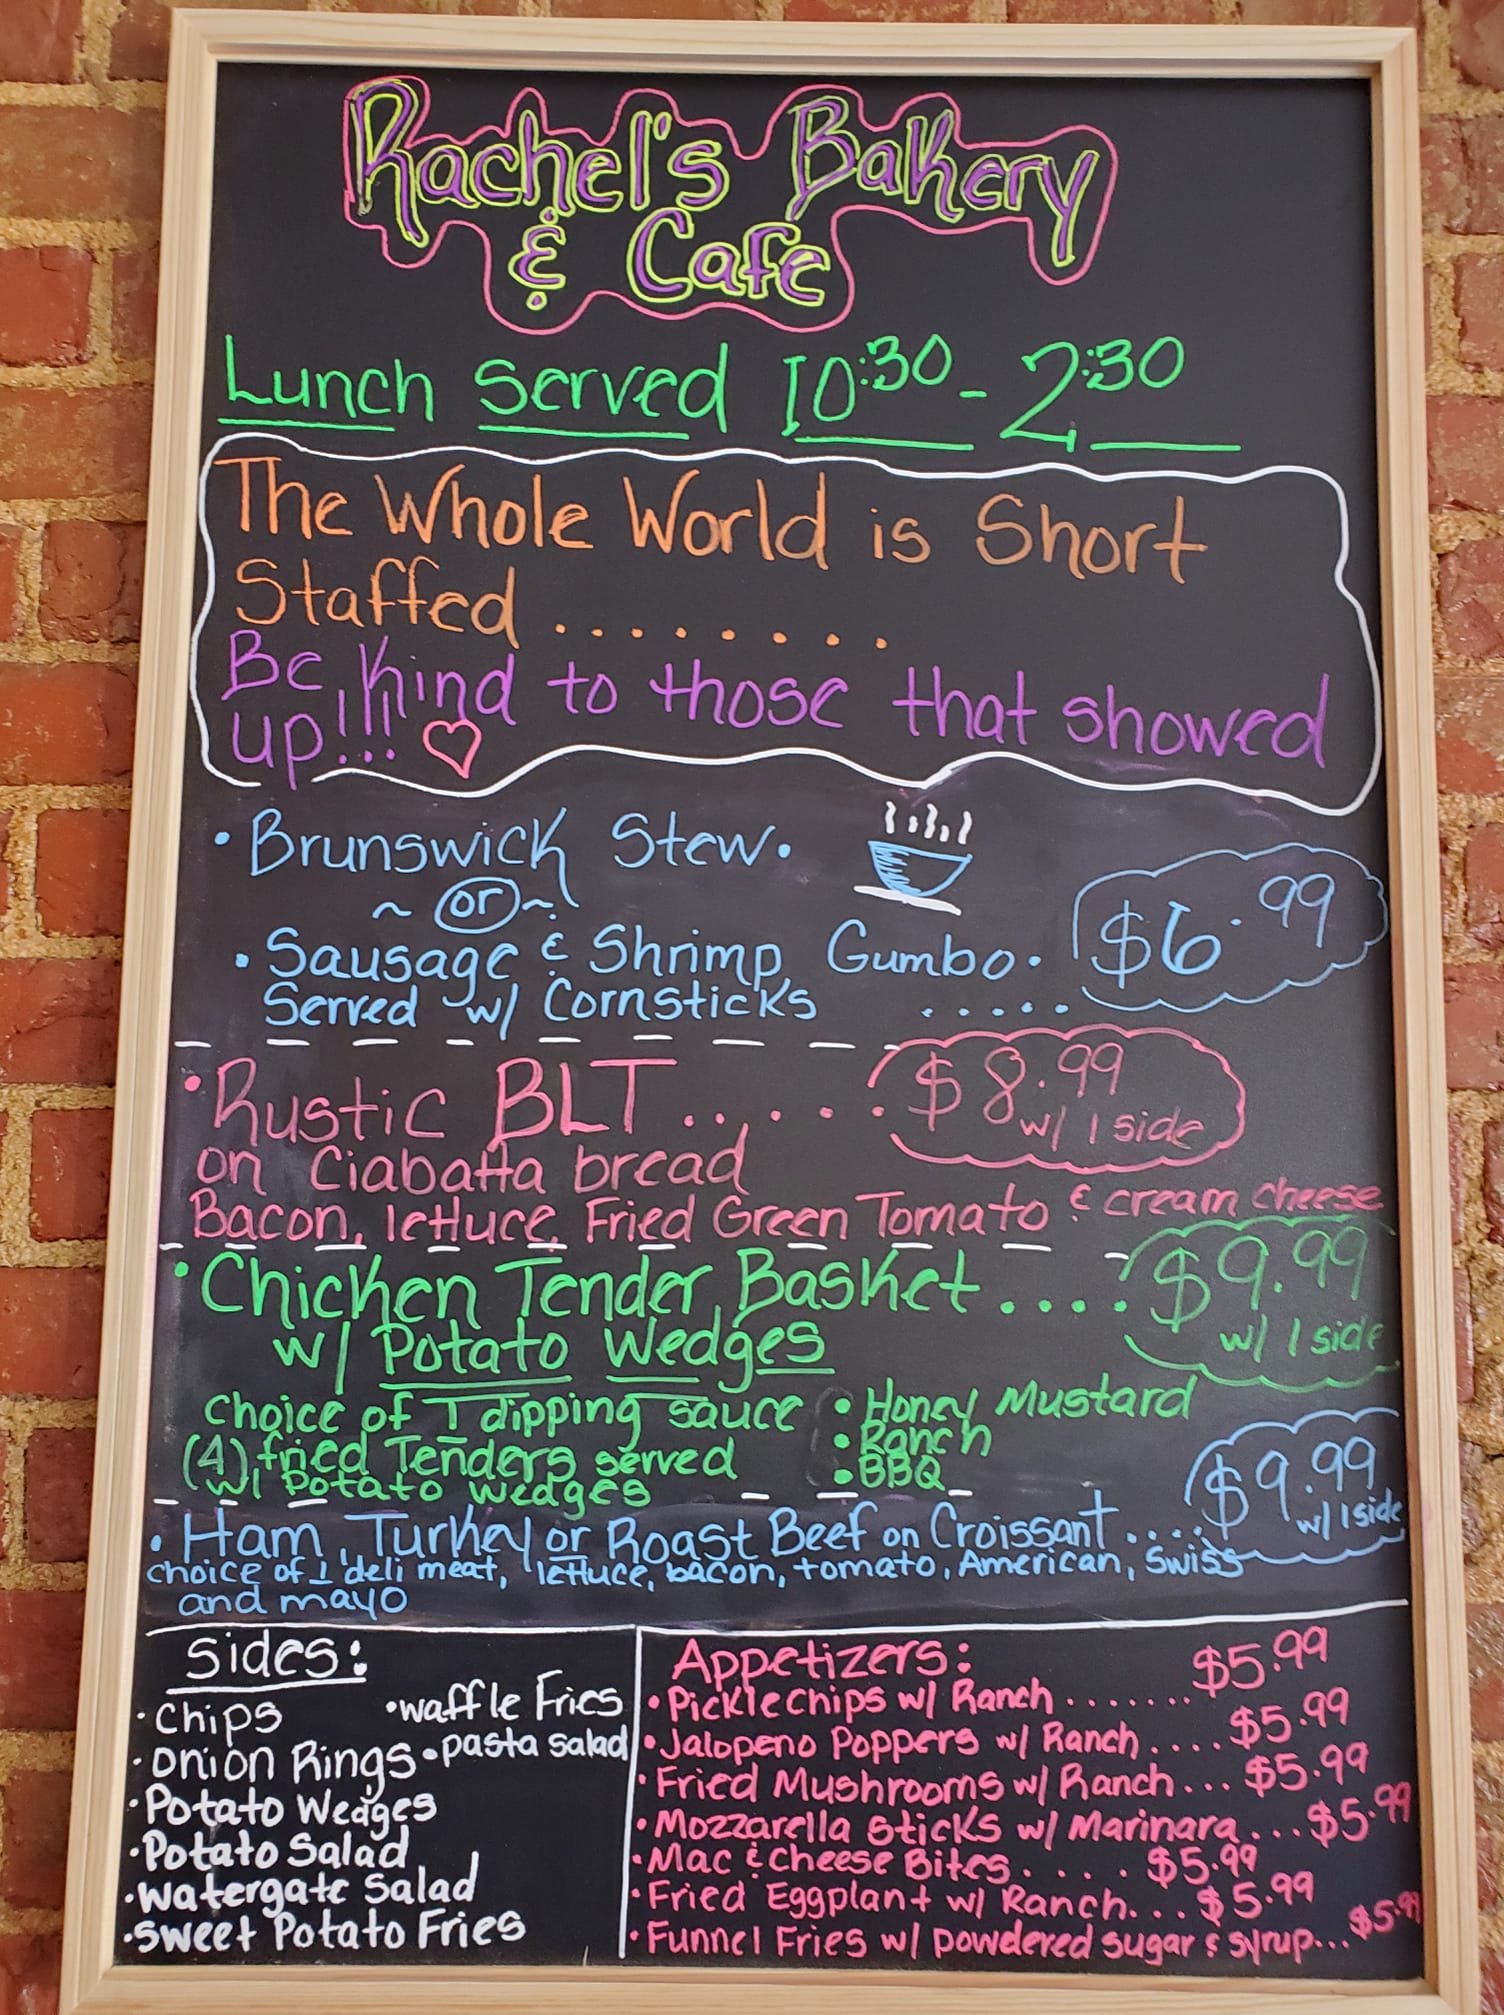 Rachel's Bakery
& Cafe
Lunch Served 10:30 - 2:30
The Whole World is Short
Staffed ........
Be Kind to those that showed
up!!! ♡
• Brunswick Stew •
~ or ~
• Sausage & Shrimp Gumbo • $6.99
Served w/ Cornsticks .....
• Rustic BLT ...... $8.99
w/ 1 side
on Ciabatta bread
Bacon, lettuce, Fried Green Tomato & cream cheese
• Chicken Tender Basket .... $9.99
w/ Potato Wedges w/ 1 side
choice of 1 dipping sauce • Honey Mustard
(4) fried Tenders served • Ranch
w/ Potato wedges • BBQ
• Ham, Turkey or Roast Beef on Croissant .... $9.99
w/ 1 side
choice of 1 deli meat, lettuce, bacon, tomato, American, Swiss
and mayo
Sides:
• Chips
• waffle Fries
• Onion Rings
• pasta salad
• Potato Wedges
• Potato Salad
• Watergate Salad
• Sweet Potato Fries
Appetizers:
• Pickle chips w/ Ranch ....... $5.99
• Jalopeno Poppers w/ Ranch .... $5.99
• Fried Mushrooms w/ Ranch ... $5.99
• Mozzarella Sticks w/ Marinara ... $5.99
• Mac & Cheese Bites .... $5.99
• Fried Eggplant w/ Ranch... $5.99
• Funnel Fries w/ powdered sugar & syrup... $5.99